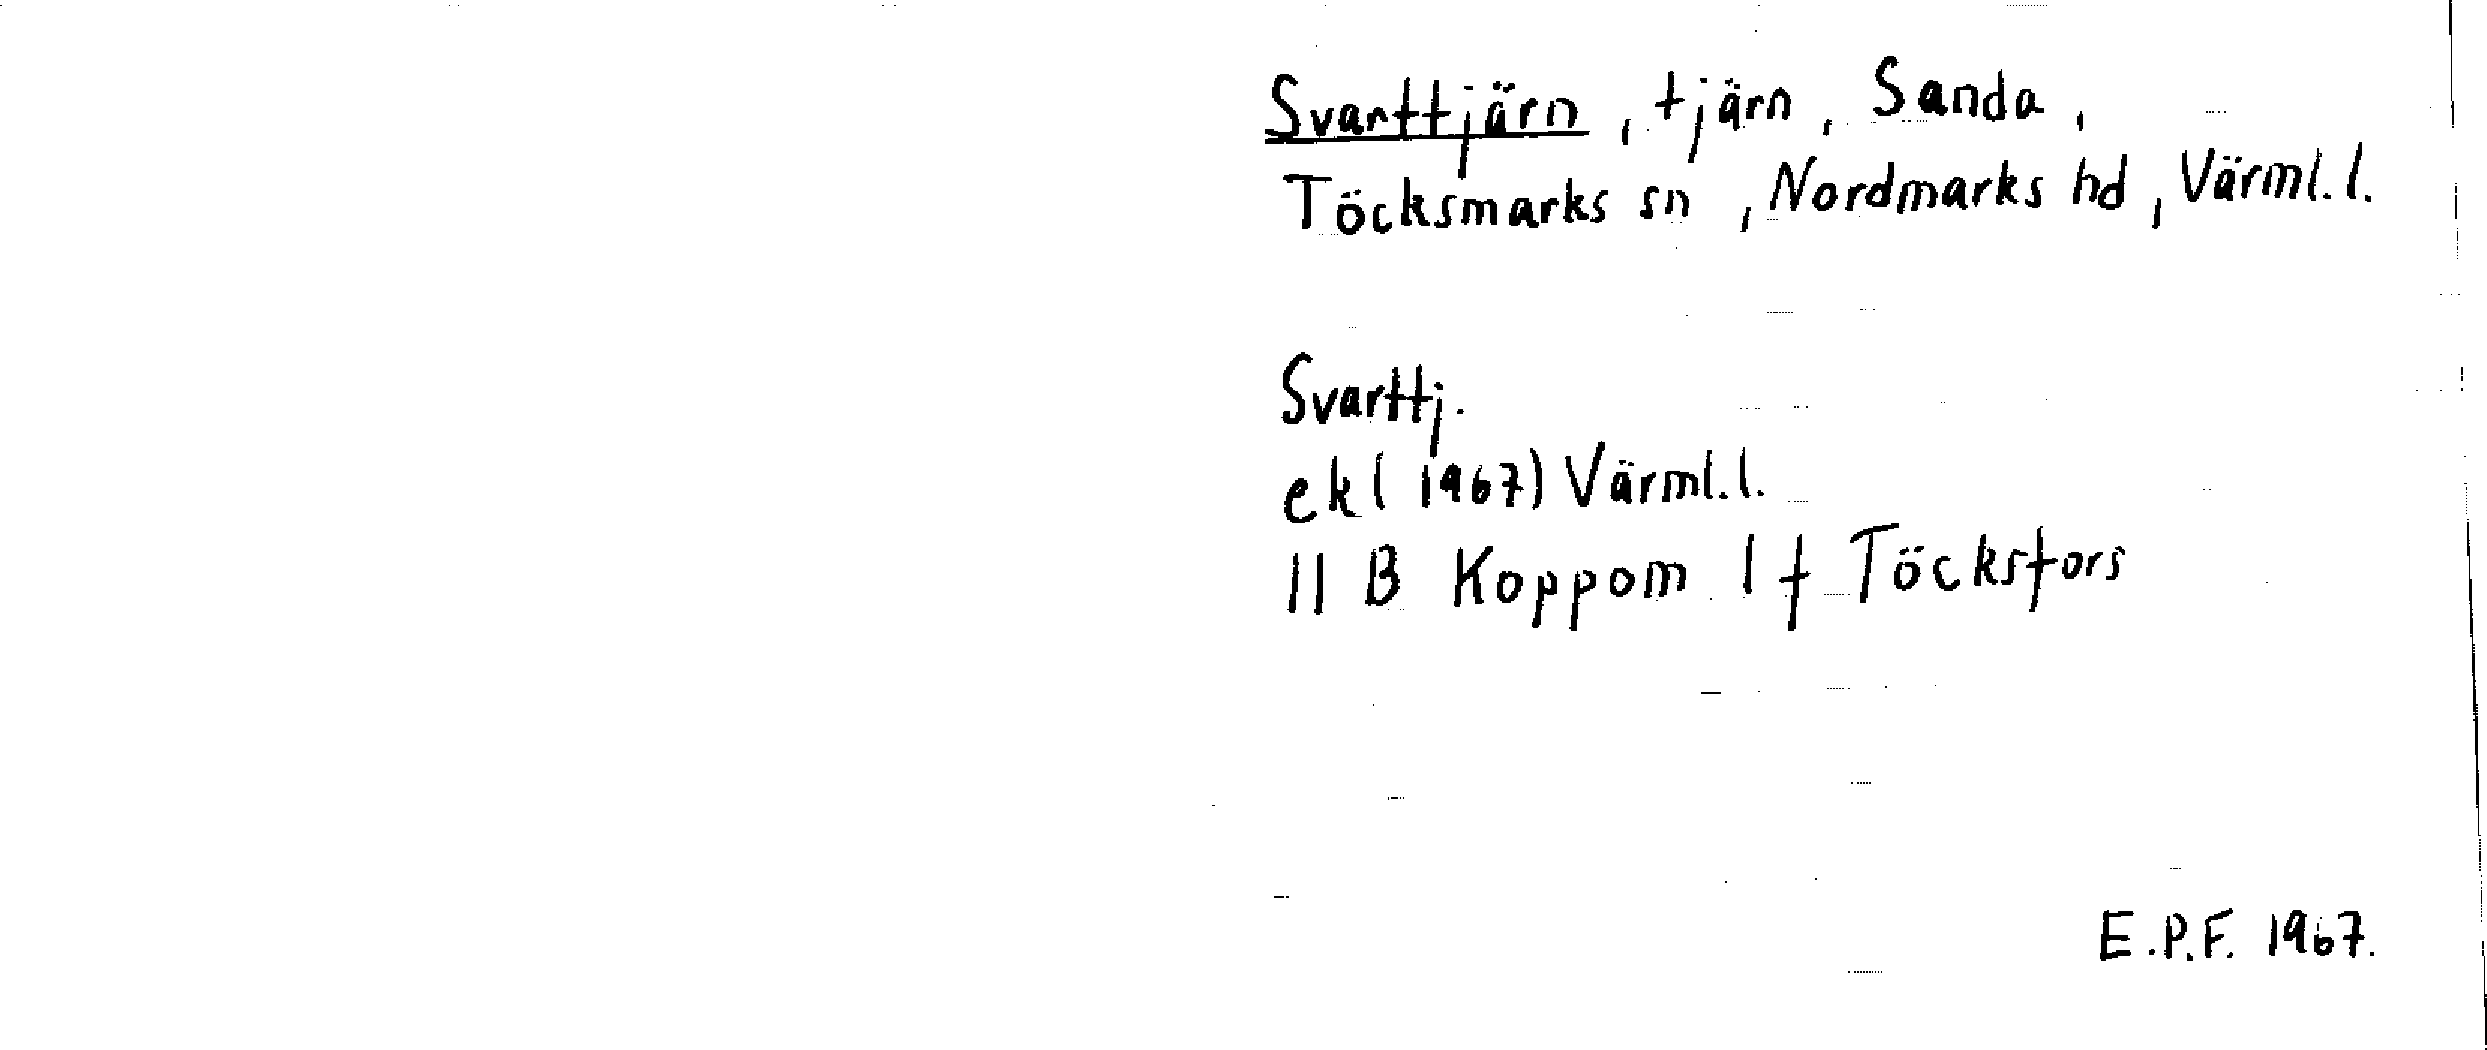 Svarttjärn, tjärn, Sanda,
Töcksmarks sn, Nordmarks hd, Värml. l.
Svarttj.
ek (1967) Värml. l.
11 B Koppom 1 f Töcksfors
E.P.F. 1967.